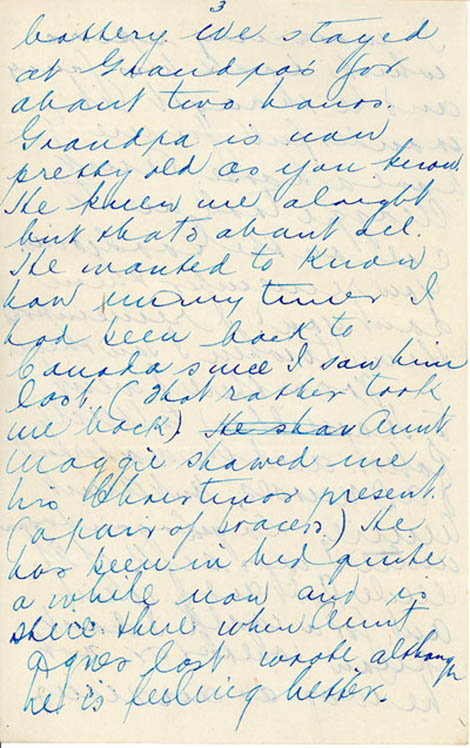 3
battery. We stayed
at Grandpa's for
about two hours.
Grandpa is now
pretty old as you know.
He knew me alright
but that's about all.
He wanted to know
how many times I
had been back to
Canada since I saw him
last. (That rather took
me back). He show Aunt
Maggie showed me
his Christmas present.
(a pair of braces.) He
has been in bed quite
a while now and is
still there when Aunt
Agnes last wrote although
he is feeling better.